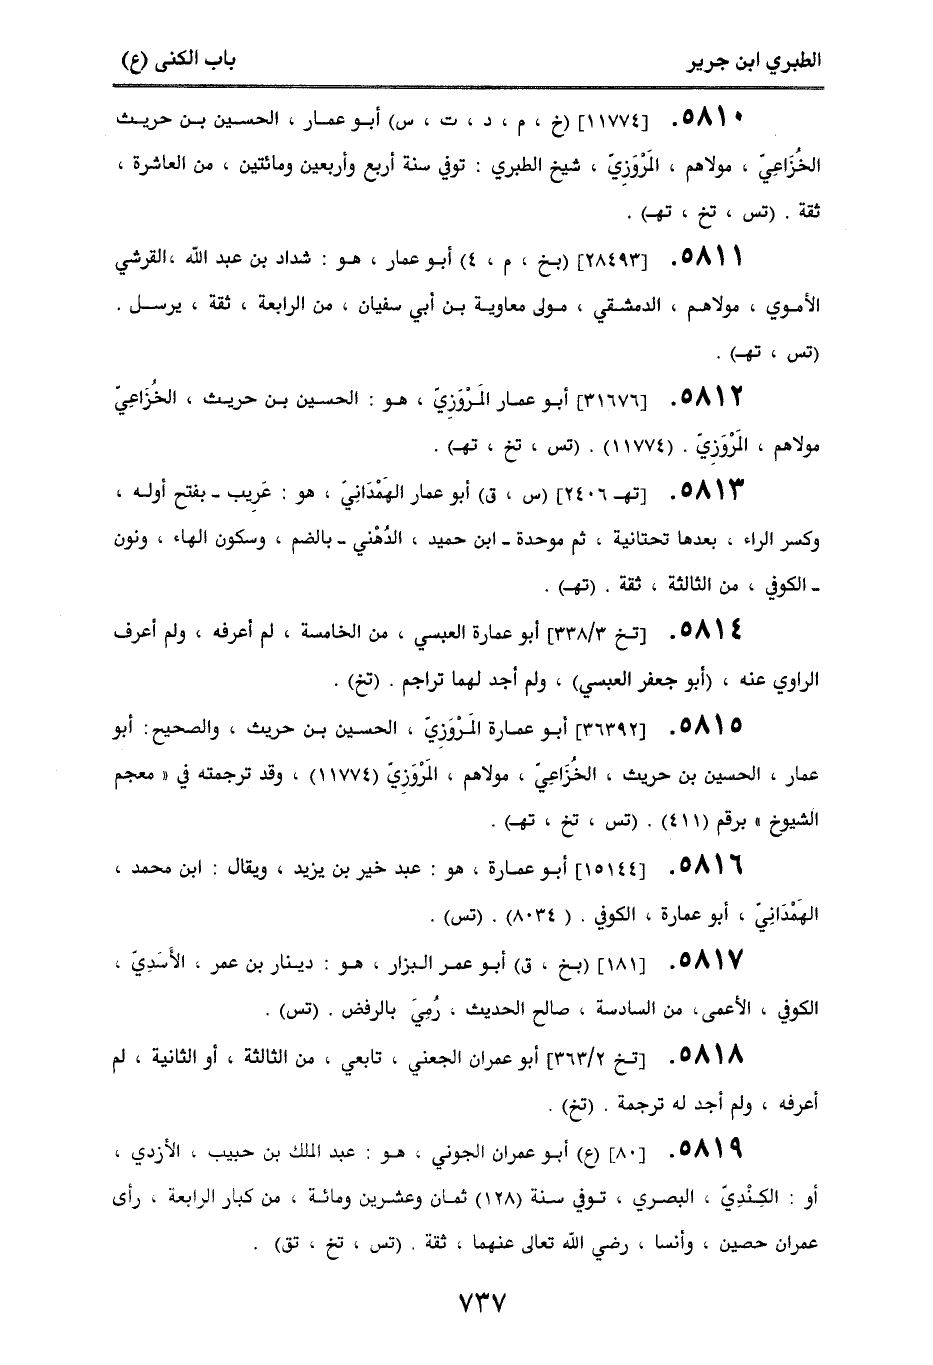 الطبري ابن جرير باب الكنى (ع)
٥٨١٠. [١١٧٧٤] (خ ، م ، د ، ت ، س) أبو عمار ، الحسين بن حريث
الخُزَاعِيّ ، مولاهم ، المَرْوَزِيّ ، شيخ الطبري : توفي سنة أربع وأربعين ومائتين ، من العاشرة ،
ثقة . (تس ، تخ ، تهـ) .
٥٨١١. [٢٨٤٩٣] (بخ ، م ، ٤) أبو عمار ، هو : شداد بن عبد الله ،القرشي
الأموي ، مولاهم ، الدمشقي ، مولى معاوية بن أبي سفيان ، من الرابعة ، ثقة ، يرسل .
(تس ، تهـ) .
٥٨١٢. [٣١٦٧٦] أبو عمار المَرْوَزِيّ ، هو : الحسين بن حريث ، الخُزَاعِيّ
مولاهم ، المَرْوَزِيّ . (١١٧٧٤) . (تس ، تخ ، تهـ) .
٥٨١٣. [تهـ ٢٤٠٦] (س ، ق) أبو عمار الهَمْدَانِيّ ، هو : عَرِيب ـ بفتح أوله ،
وكسر الراء ، بعدها تحتانية ، ثم موحدة ـ ابن حميد ، الدُهْني ـ بالضم ، وسكون الهاء ، ونون
ـ الكوفي ، من الثالثة ، ثقة . (تهـ) .
٥٨١٤. [تخ ٣٣٨/٣] أبو عمارة العبسي ، من الخامسة ، لم أعرفه ، ولم أعرف
الراوي عنه ، (أبو جعفر العبسي) ، ولم أجد لهما تراجم . (تخ) .
٥٨١٥. [٣٦٣٩٢] أبو عمارة المَرْوَزِيّ ، الحسين بن حريث ، والصحيح: أبو
عمار ، الحسين بن حريث ، الخُزَاعِيّ ، مولاهم ، المَرْوَزِيّ (١١٧٧٤) ، وقد ترجمته في « معجم
الشيوخ » برقم (٤١١) . (تس ، تخ ، تهـ) .
٥٨١٦. [١٥١٤٤] أبو عمارة ، هو : عبد خير بن يزيد ، ويقال : ابن محمد ،
الهَمْدَانِيّ ، أبو عمارة ، الكوفي . ( ٨٠٣٤) . (تس) .
٥٨١٧. [١٨١] (بخ ، ق) أبو عمر البزار ، هو : دينار بن عمر ، الأَسَدِيّ ،
الكوفي ، الأعمى، من السادسة ، صالح الحديث ، رُمِيَ بالرفض . (تس) .
٥٨١٨. [تخ ٣٦٣/٢] أبو عمران الجعني ، تابعي ، من الثالثة ، أو الثانية ، لم
أعرفه ، ولم أجد له ترجمة . (تخ) .
٥٨١٩. [٨٠] (ع) أبو عمران الجوني ، هو : عبد الملك بن حبيب ، الأزدي ،
أو : الكِنْدِيّ ، البصري ، توفي سنة (١٢٨) ثمان وعشرين ومائة ، من كبار الرابعة ، رأى
عمران حصين ، وأنسا ، رضي الله تعالى عنهما ، ثقة . (تس ، تخ ، تق) .
٧٣٧